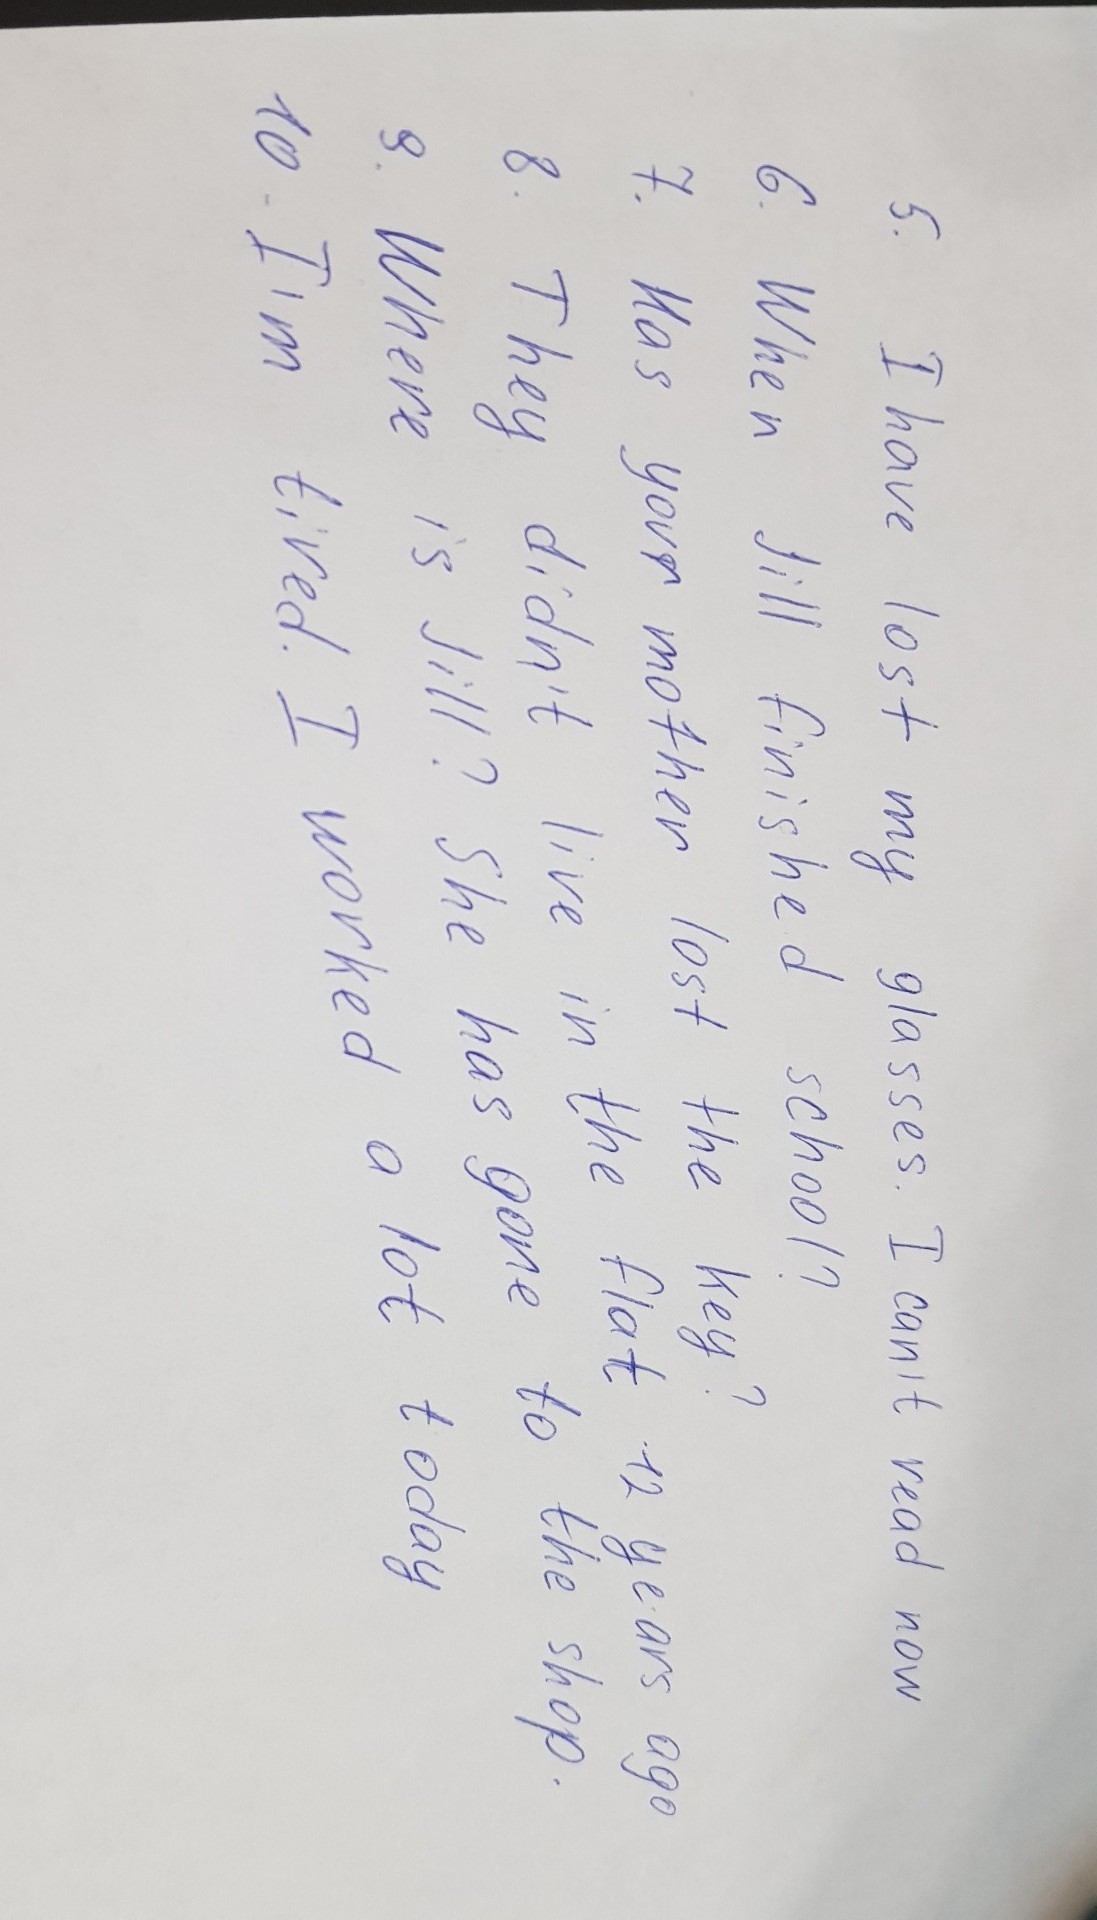 5. I have lost my glasses. I can't read now
6. When Jill finished school?
7. Has your mother lost the key?
8. They didn't live in the flat 12 years ago
9. Where is Jill? She has gone to the shop.
10. I'm tired. I worked a lot today